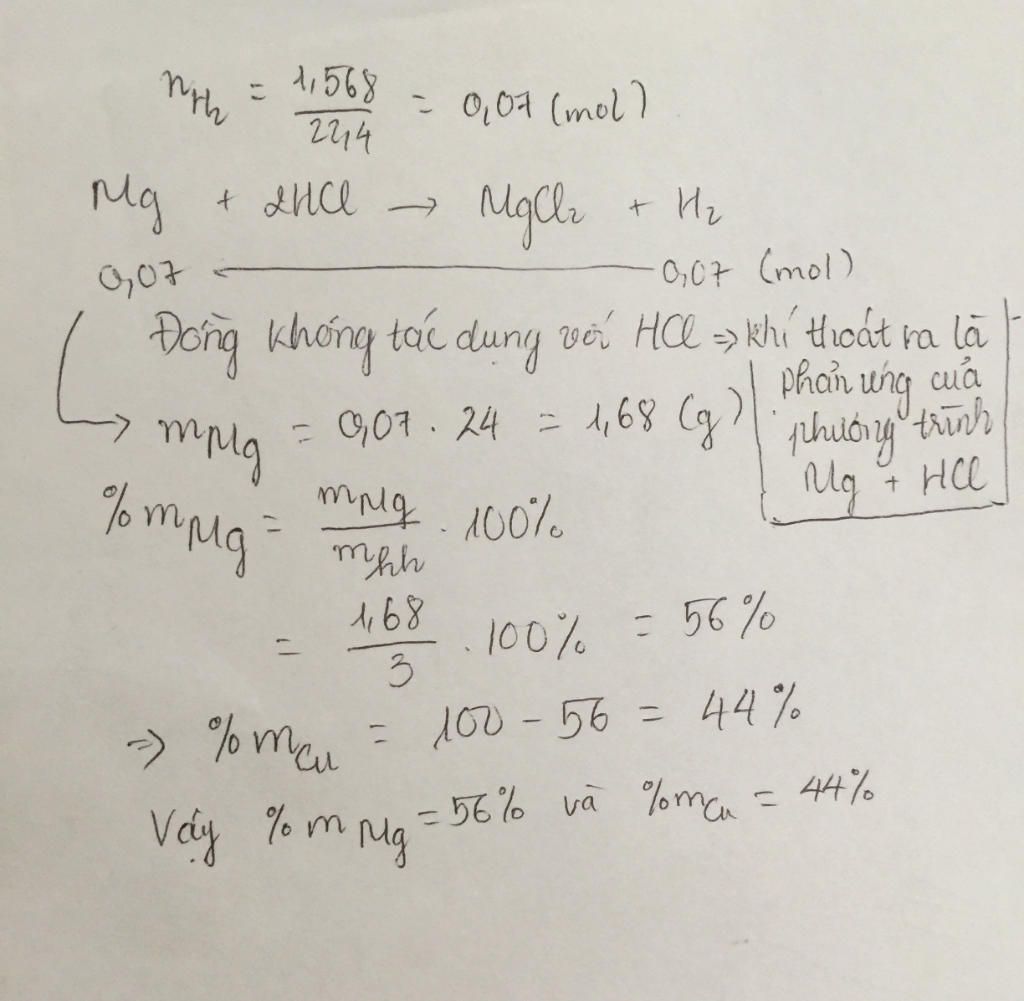 nH₂ = 1,568/22,4 = 0,07 (mol)
Mg + 2HCl → MgCl₂ + H₂
0,07 ← 0,07 (mol)
Đồng không tác dụng với HCl => khí thoát ra là
phản ứng của
phương trình
Mg + HCl
→ mMg = 0,07 . 24 = 1,68 (g)
%mMg = mMg/mhh . 100%
= 1,68/3 . 100% = 56%
=> %mCu = 100 - 56 = 44%
Vậy %mMg = 56% và %mCu = 44%